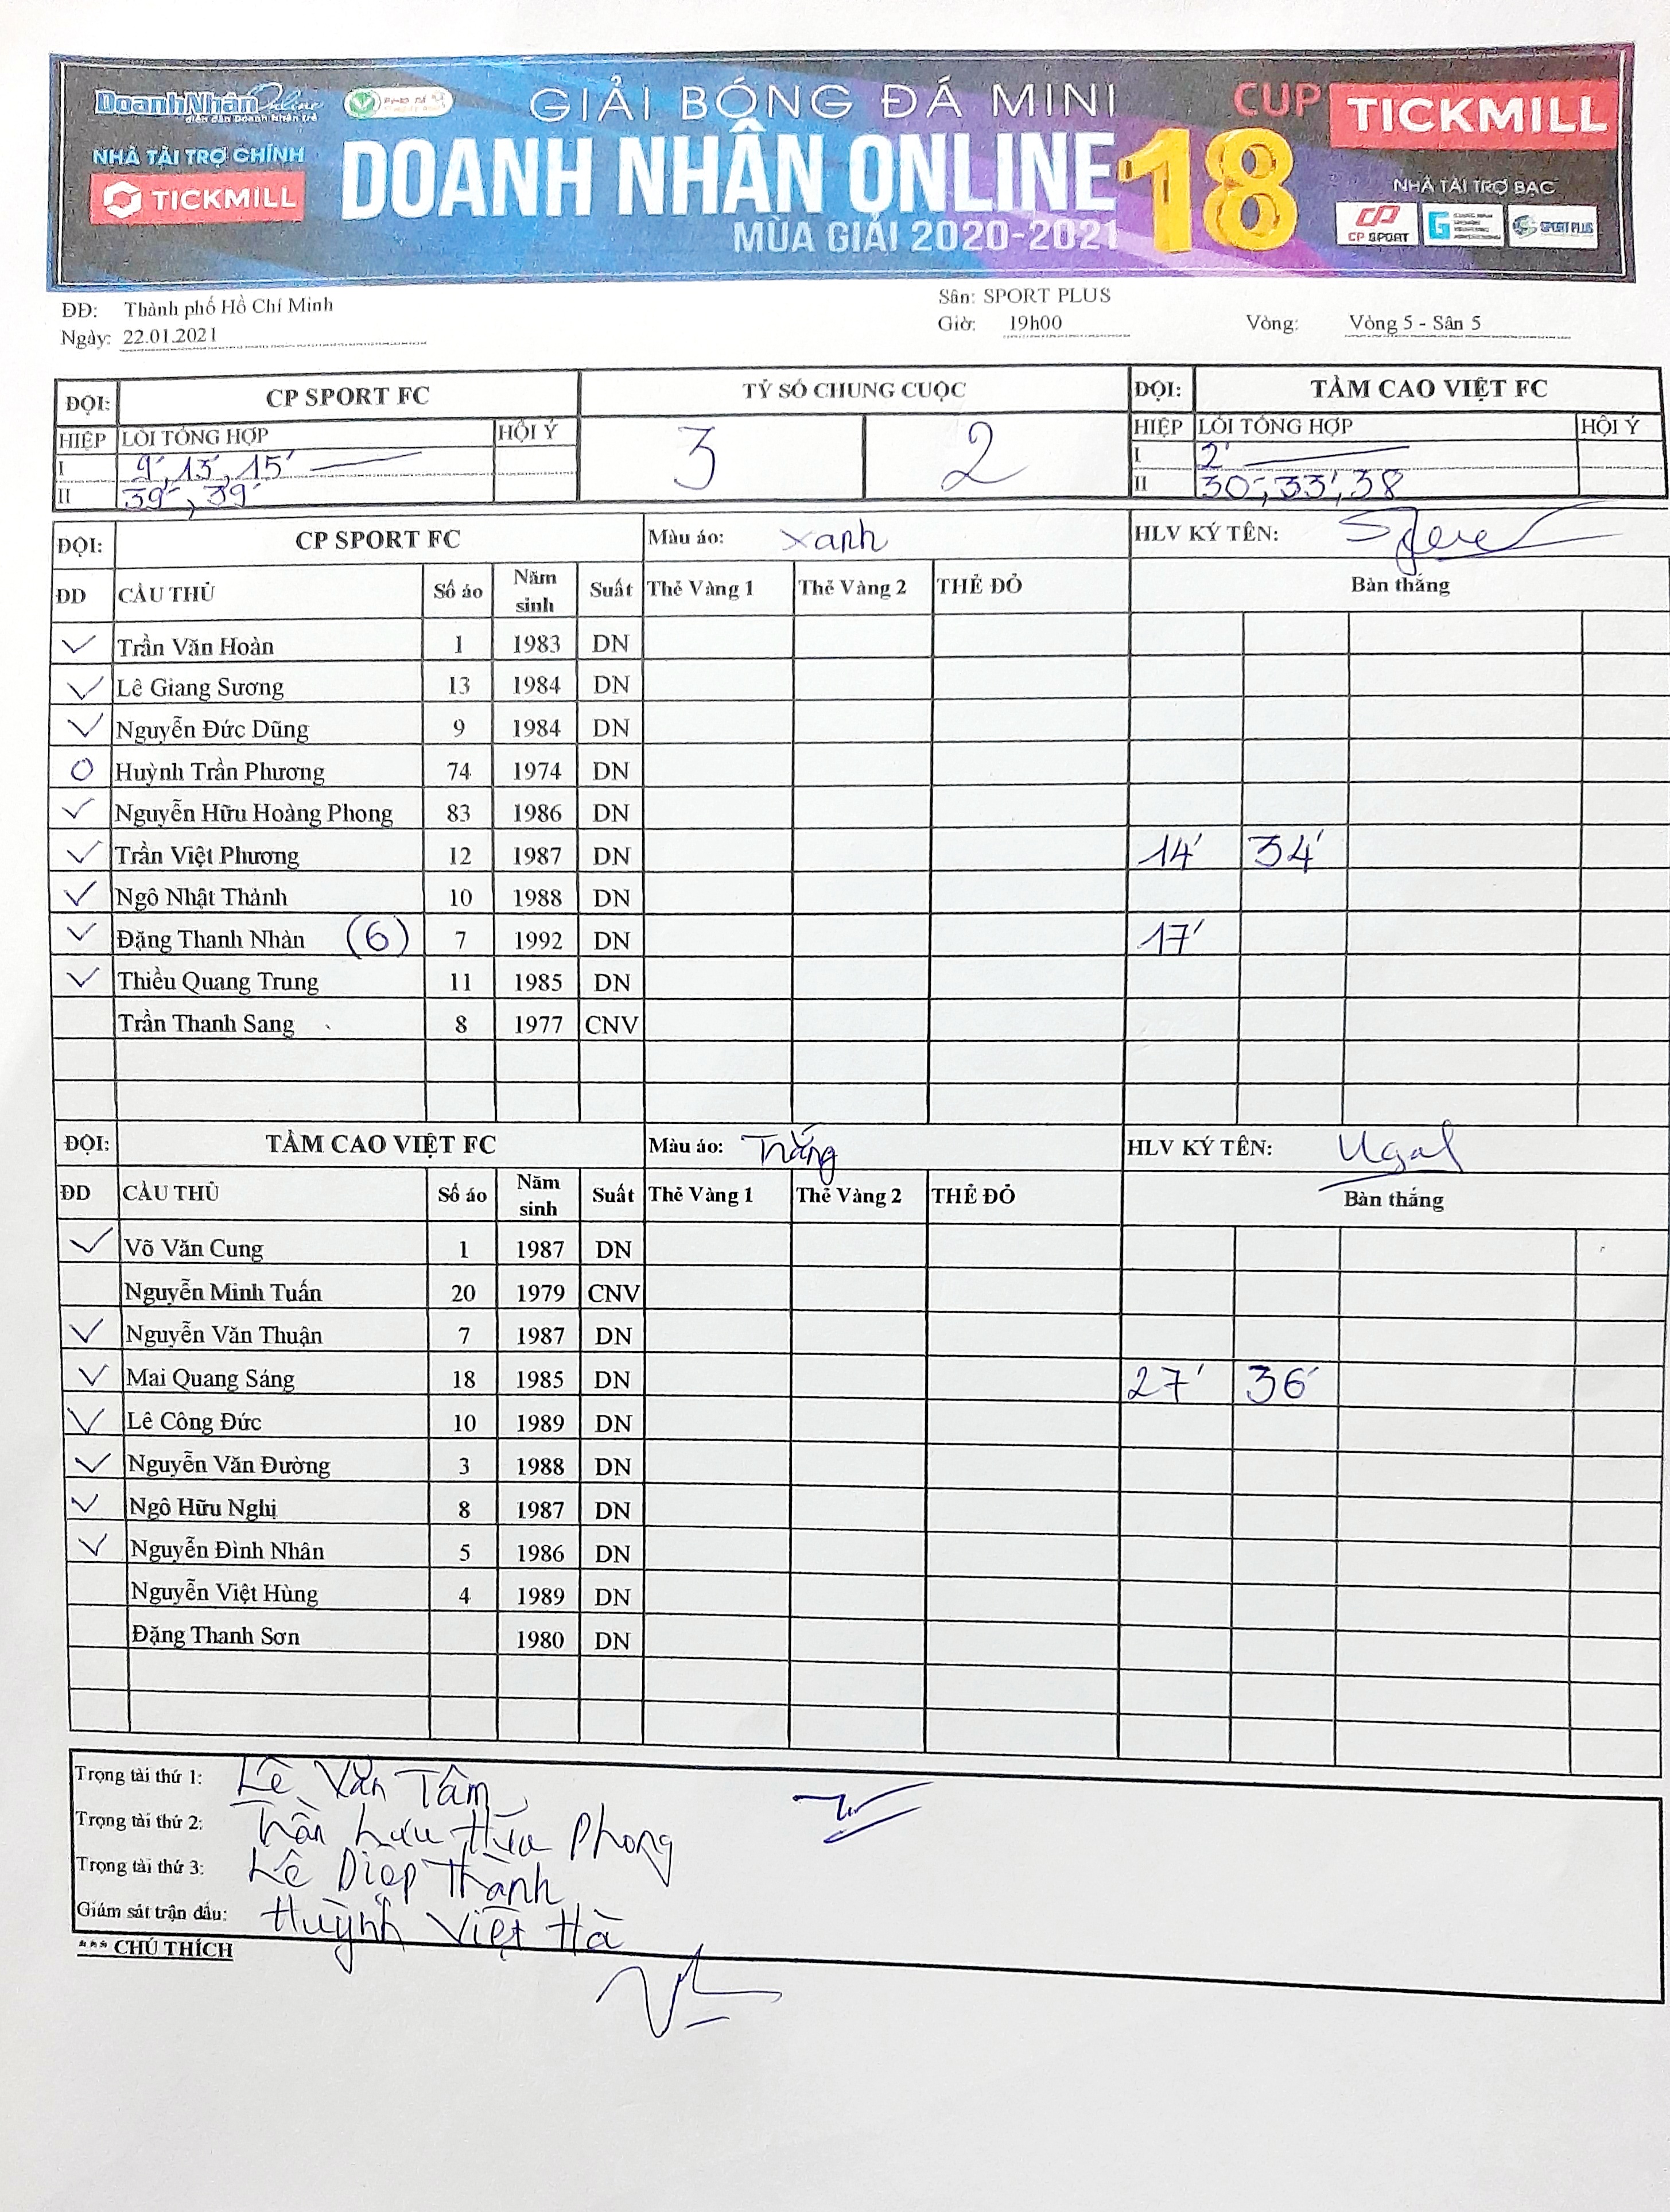 DoanhNhân Online
diễn đàn Doanh Nhân trẻ
NHÀ TÀI TRỢ CHÍNH
TICKMILL
GIẢI BÓNG ĐÁ MINI
DOANH NHÂN ONLINE 18
MÙA GIẢI 2020-2021
CUP TICKMILL
NHÀ TÀI TRỢ BẠC
CP SPORT
SPORT PLUS
ĐĐ: Thành phố Hồ Chí Minh Sân: SPORT PLUS
Ngày: 22.01.2021 Giờ: 19h00 Vòng: Vòng 5 - Sân 5
ĐỘI: CP SPORT FC TỶ SỐ CHUNG CUỘC ĐỘI: TẦM CAO VIỆT FC
HIỆP LỖI TỔNG HỢP HỘI Ý 3 2 HIỆP LỖI TỔNG HỢP HỘI Ý
I 9', 13', 15' I 2'
II 39', 39' II 30', 33', 38
ĐỘI: CP SPORT FC Màu áo: Xanh HLV KÝ TÊN:
ĐD CẦU THỦ Số áo Năm sinh Suất Thẻ Vàng 1 Thẻ Vàng 2 THẺ ĐỎ Bàn thắng
Trần Văn Hoàn 1 1983 DN
Lê Giang Sương 13 1984 DN
Nguyễn Đức Dũng 9 1984 DN
Huỳnh Trần Phương 74 1974 DN
Nguyễn Hữu Hoàng Phong 83 1986 DN
Trần Việt Phương 12 1987 DN 14' 34'
Ngô Nhật Thành 10 1988 DN
Đặng Thanh Nhàn (6) 7 1992 DN 17'
Thiều Quang Trung 11 1985 DN
Trần Thanh Sang 8 1977 CNV
ĐỘI: TẦM CAO VIỆT FC Màu áo: Trắng HLV KÝ TÊN:
ĐD CẦU THỦ Số áo Năm sinh Suất Thẻ Vàng 1 Thẻ Vàng 2 THẺ ĐỎ Bàn thắng
Võ Văn Cung 1 1987 DN
Nguyễn Minh Tuấn 20 1979 CNV
Nguyễn Văn Thuận 7 1987 DN
Mai Quang Sáng 18 1985 DN 27' 36'
Lê Công Đức 10 1989 DN
Nguyễn Văn Đường 3 1988 DN
Ngô Hữu Nghị 8 1987 DN
Nguyễn Đình Nhân 5 1986 DN
Nguyễn Việt Hùng 4 1989 DN
Đặng Thanh Sơn 1980 DN
Trọng tài thứ 1: Lê Văn Tâm
Trọng tài thứ 2: Trần Lưu Hữu Phong
Trọng tài thứ 3: Lê Diệp Thành
Giám sát trận đấu: Huỳnh Việt Hà
*** CHÚ THÍCH